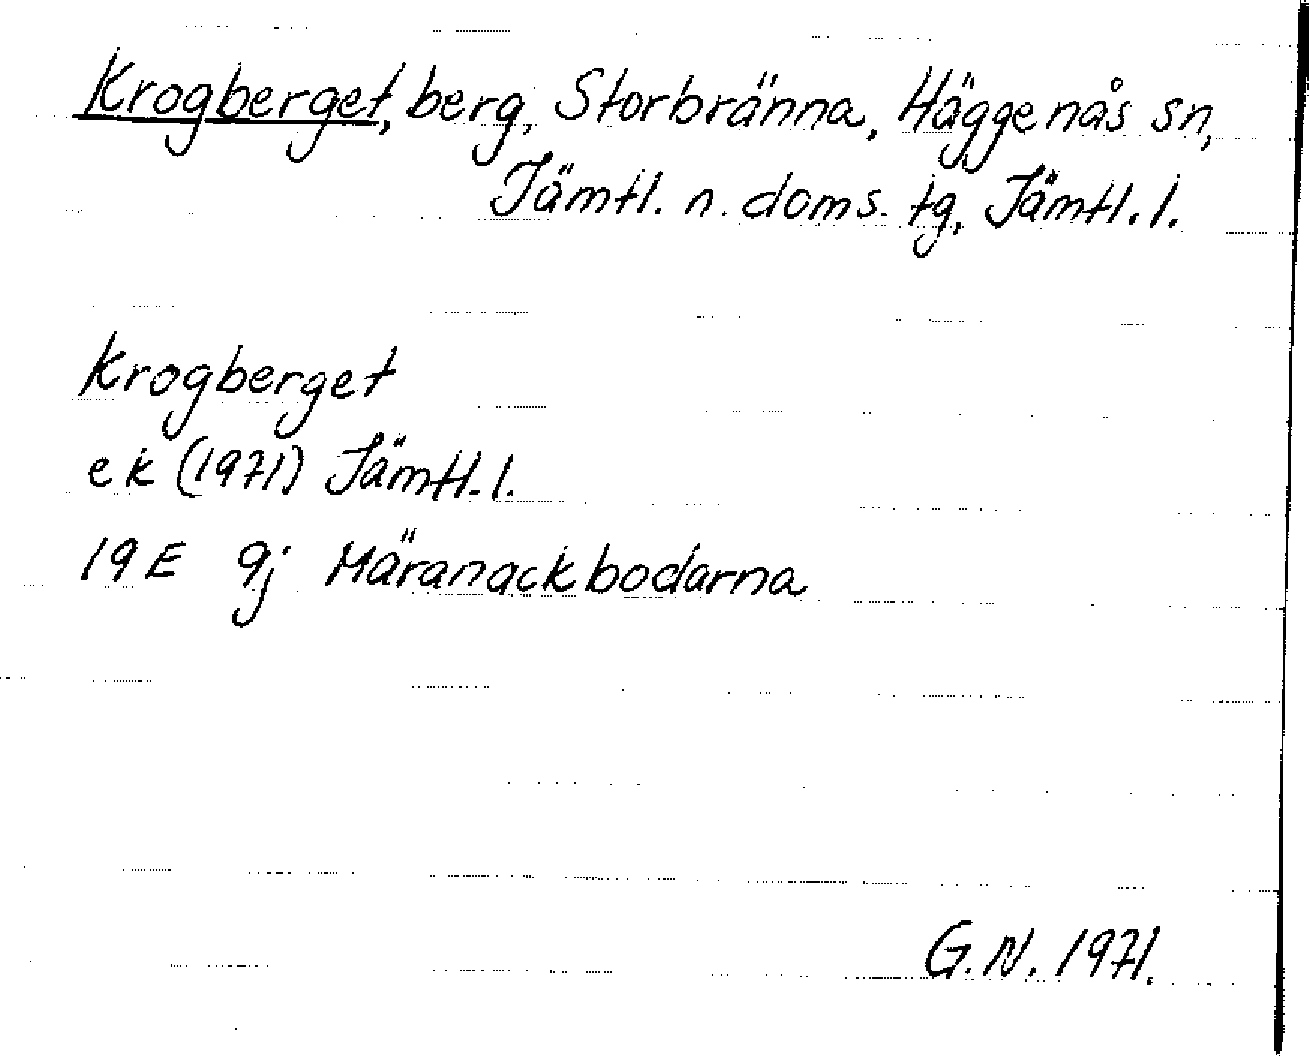 Krogberget, berg, Storbränna, Häggenås sn,
Jämtl. n. doms. tg, Jämtl. l.
Krogberget
ek (1971) Jämtl. l.
19E 9j Märanackbodarna
G.N. 1971.